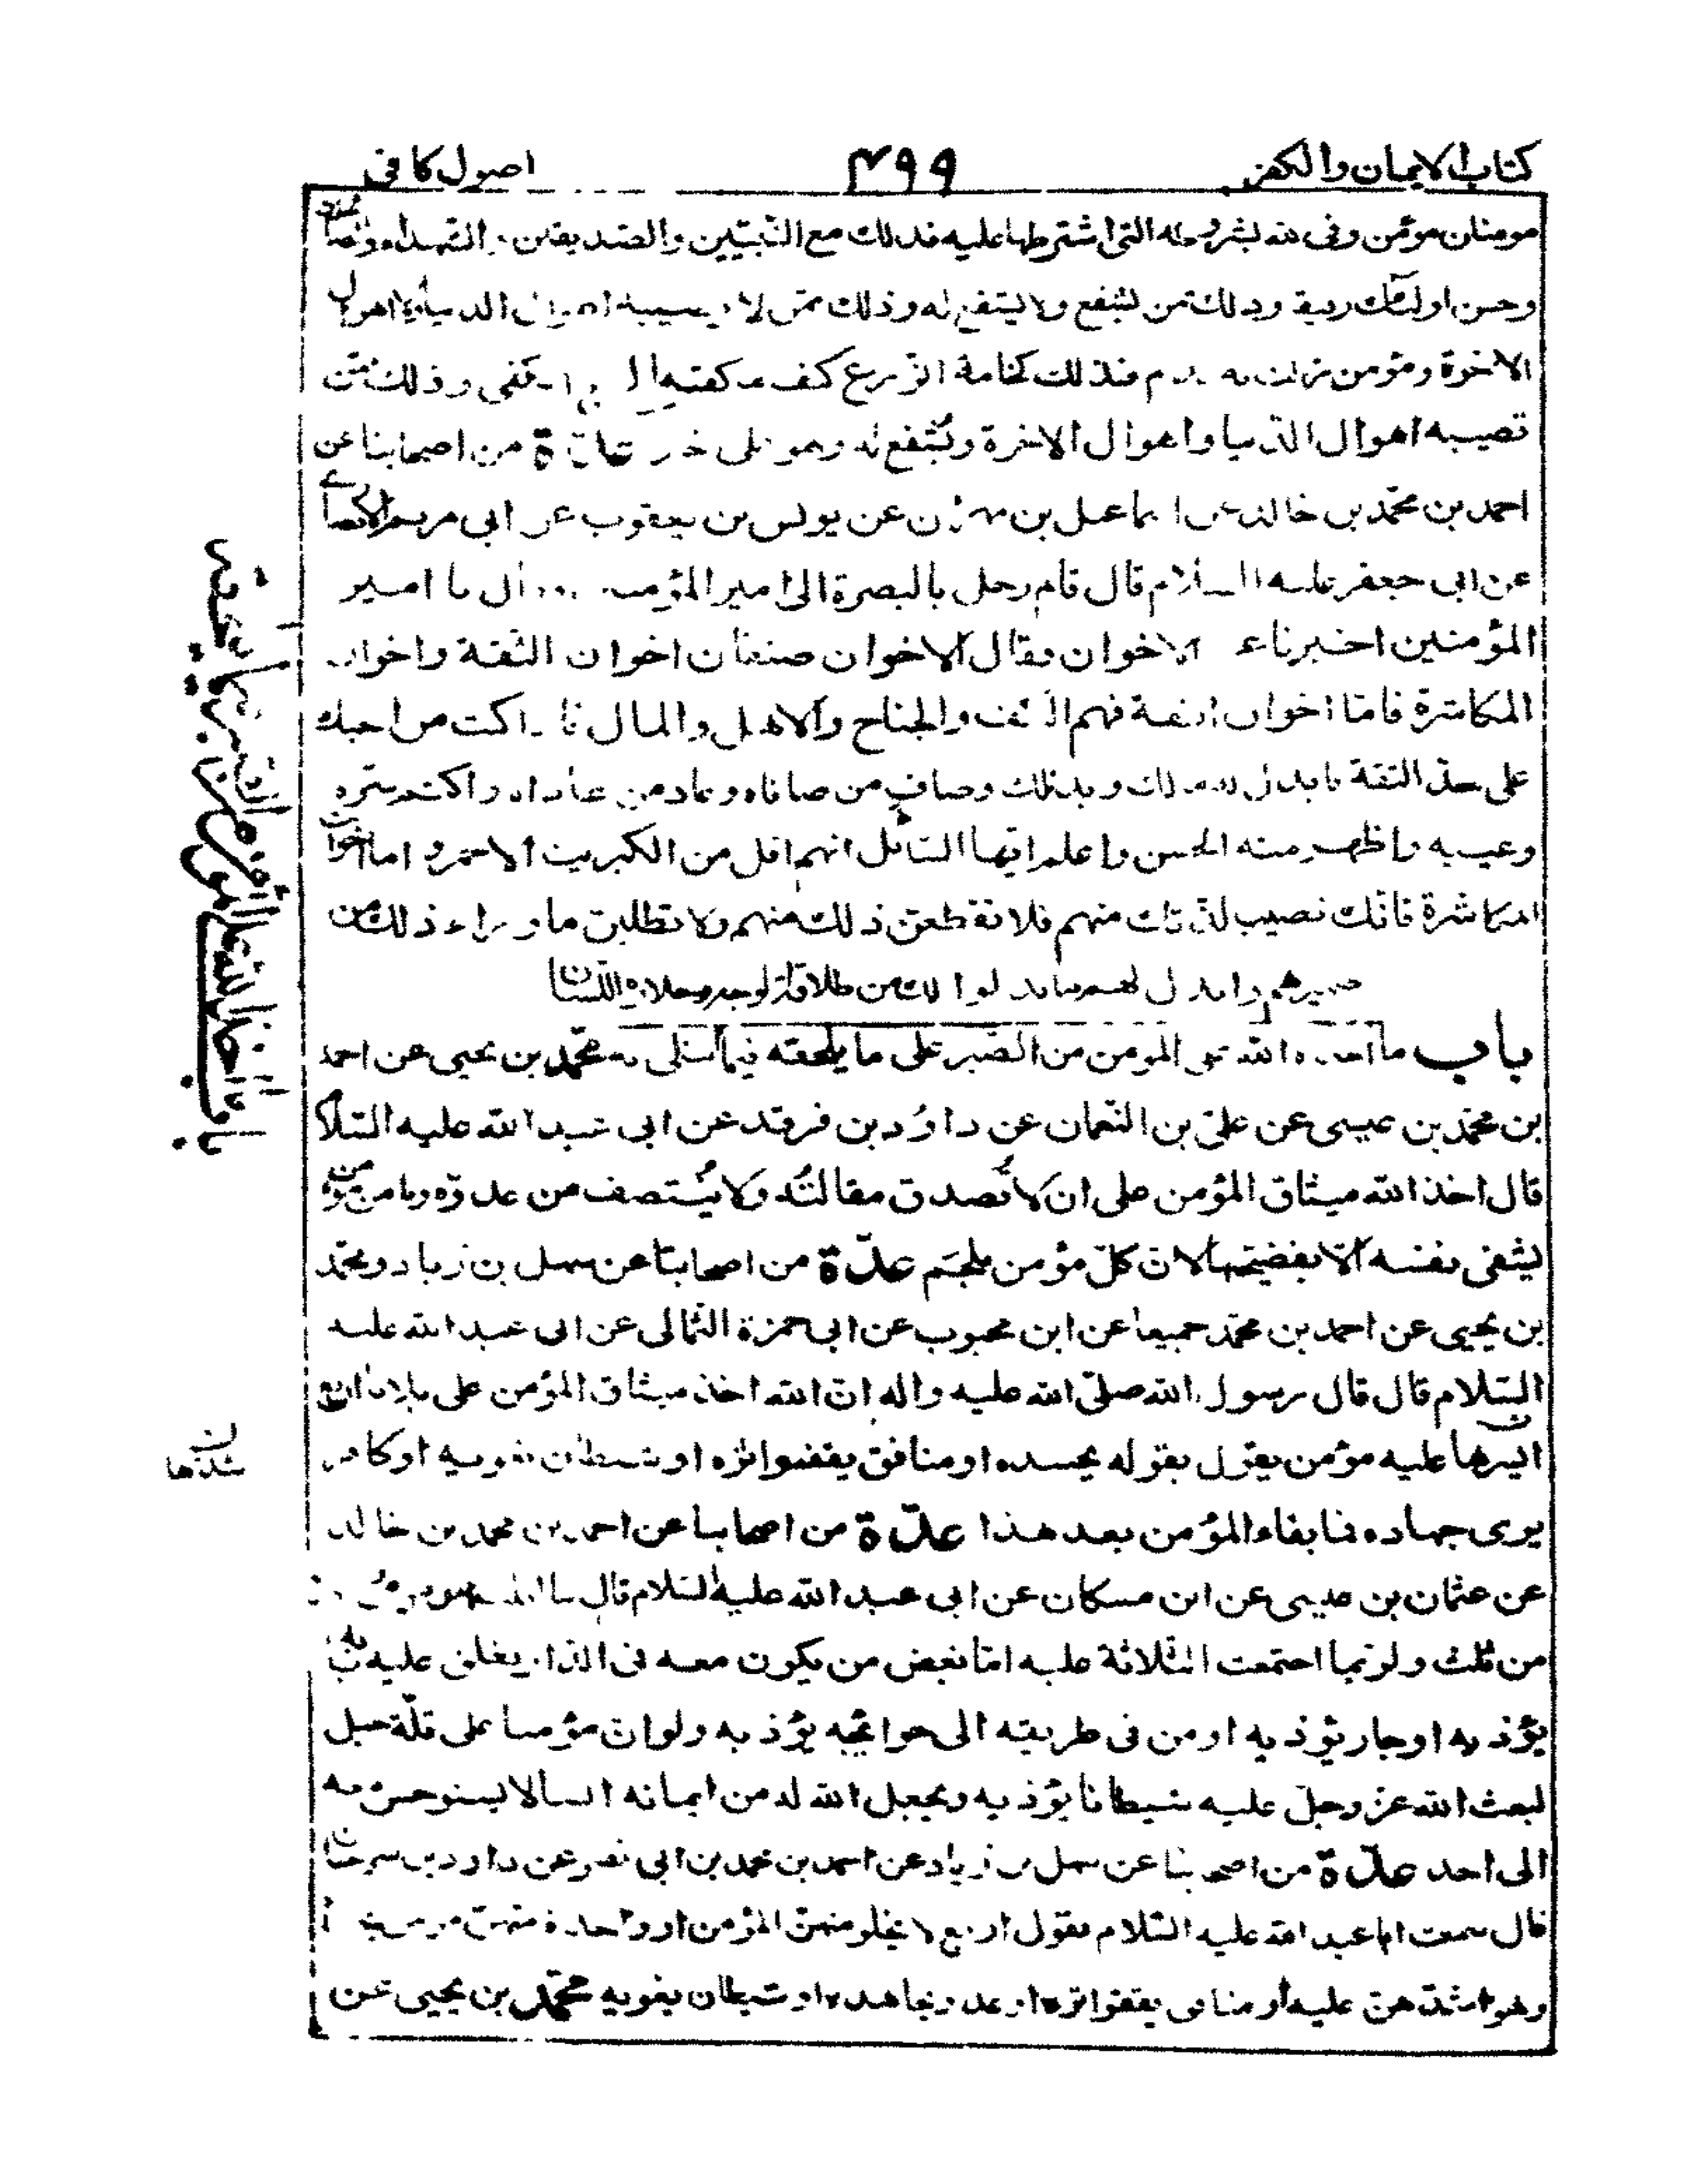 كتاب الايمان والكفر ۴۹۹ اصول كافى
مومنان مؤمن وفى لله بشروطه التى اشترطها عليه فذلك مع النبيّين والصديقين والشهداء والصا
وحسن اولئك رفيقا وذلك من يشفع ولا يشفع له وذلك ممّن لا يصيبه اهوال الدنيا ولا اهوال
الاخرة ومؤمن زلت به قدم فذلك كخامة الزّرع كيف كفته الريح انكفى وذلك ممّن
تصيبه اهوال الدّنيا واهوال الاخرة ويُشفع له وهو على خير عدّة من اصحابنا عن
احمد بن محمّد بن خالد عن اسماعيل بن مهران عن يونس بن يعقوب عن ابى مريم الانصارى
عن ابى جعفر عليه السلام قال قام رجل بالبصرة الى امير المؤمنين فقال يا امير
المؤمنين اخبرنا عن الاخوان فقال الاخوان صنفان اخوان الثقة واخوان
المكاشرة فامّا اخوان الثقة فهم الكف والجناح والاهل والمال فاذا كنت من اخيك
على حدّ الثقة فابذل له مالك وبدنك وصاف من صافاه وعاد من عاداه واكتم سرّه
وعيبه واظهر منه الحسن واعلم ايّها السائل انهم اقل من الكبريت الاحمر واما اخوان
المكاشرة فانّك تصيب لذّتك منهم فلا تقطعنّ ذلك منهم ولا تطلبن ما وراء ذلك من
ضميرهم وابذل لهم ما بذلوا لك من طلاقة الوجه وحلاوة اللسان
باب ما اخذه الله على المؤمن من الصّبر على ما يلحقه فيما ابتلى به محمّد بن يحيى عن احمد
بن محمّد بن عيسى عن علىّ بن النّعمان عن داوُد بن فرقد عن ابى عبد الله عليه السّلام
قال اخذ الله ميثاق المؤمن على ان لا تُصدق مقالتُه ولا يُنتصف من عدوّه وما من مؤمن
يشفى نفسه الّا بفضيحتها لان كلّ مؤمن ملجَم عدّة من اصحابنا عن سهل بن زياد ومحمّد
بن يحيى عن احمد بن محمّد جميعا عن ابن محبوب عن ابى حمزة الثّمالى عن ابى عبد الله عليه
السّلام قال قال رسول الله صلّى الله عليه واله ان الله اخذ ميثاق المؤمن على بلايا اربع
ايسرها عليه مؤمن يقول بقوله يحسده او منافق يقفوا اثره او شيطان يغويه او كافر
شدّها
يرى جهاده فما بقاء المؤمن بعد هذا عدّة من اصحابنا عن احمد بن محمد بن خالد
عن عثمان بن عيسى عن ابن مسكان عن ابى عبد الله عليه السّلام قال ما
من ثلث ولربّما اجتمعت الثّلاثة عليه امّا بغض من يكون معه فى الدّار يغلق عليه بابه
يؤذيه او جار يؤذيه او من فى طريقه الى حوائجه يؤذيه ولو ان مؤمنا على قلّة جبل
لبعث الله عزّ وجلّ عليه شيطانا يؤذيه ويجعل الله له من ايمانه انسا لا يستوحش معه
الى احد عدّة من اصحابنا عن سهل بن زياد عن احمد بن محمد بن ابى نصر عن داود بن سرحان
قال سمعت ابا عبد الله عليه السّلام يقول اربع لا يخلو منهنّ المؤمن او واحدة منهن مؤمن
وهو اشدّهنّ عليه او منافق يقفوا اثره او عدوّ يجاهده او شيطان يغويه محمّد بن يحيى عن